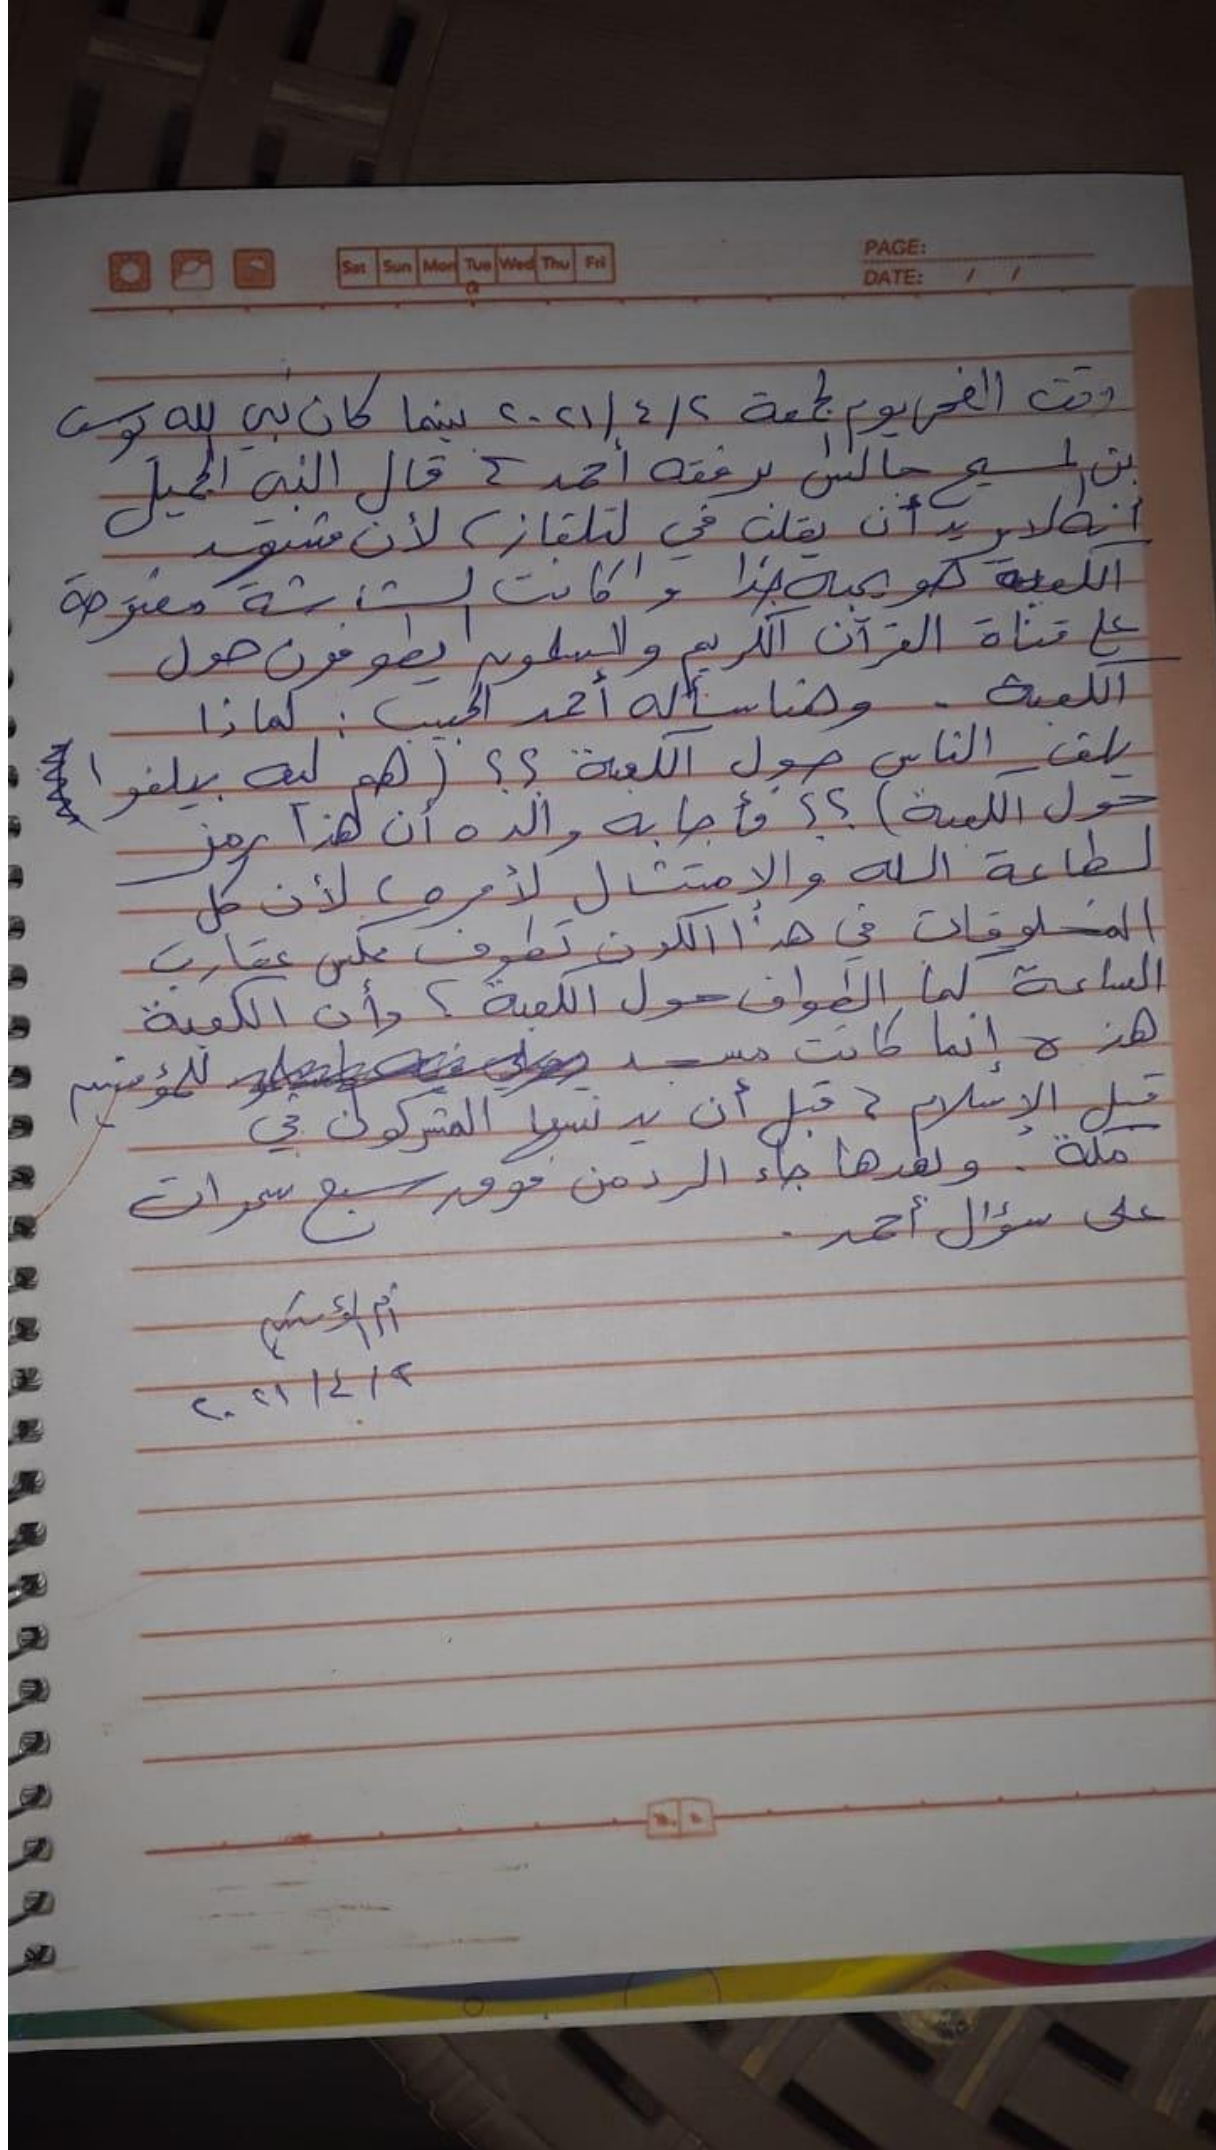 Sat Sun Mon Tue Wed Thu Fri
PAGE:
DATE: / /
وقت الفجر يوم لجمعة ٢٠٢١/٤/٢ بينما كان نبي لله يوسف
بن لمسيح جالس برفقته أحمد ؟ قال النبي الجميل
أنه لا يريد أن يقلب في لتلفاز ، لأن مشهد
الكعبة هو يحبه جدا و كانت لشاشة مفتوحة
على قناة القرآن الكريم والمسلمون يطوفون حول
الكعبة . وهنا سأله أحمد الحبيب : لماذا
يلف الناس حول الكعبة ؟؟ ( هم ليه بيلفوا
حول الكعبة ) ؟؟ فأجابه والده أن هذا رمز
لطاعة الله والامتثال لأمره ، لأن كل
المخلوقات في هذا الكون تطوف عكس عقارب
الساعة كما الطواف حول الكعبة ؟ وأن الكعبة
هذه إنما كانت مسجد للمؤمنين
قبل الإسلام ؟ قبل أن يدنسها المشركون في
مكة . وبعدها جاء الرد من فوق سبع سموات
على سؤال أحمد .
أم المؤمنين
٢٠٢١/٤/٢